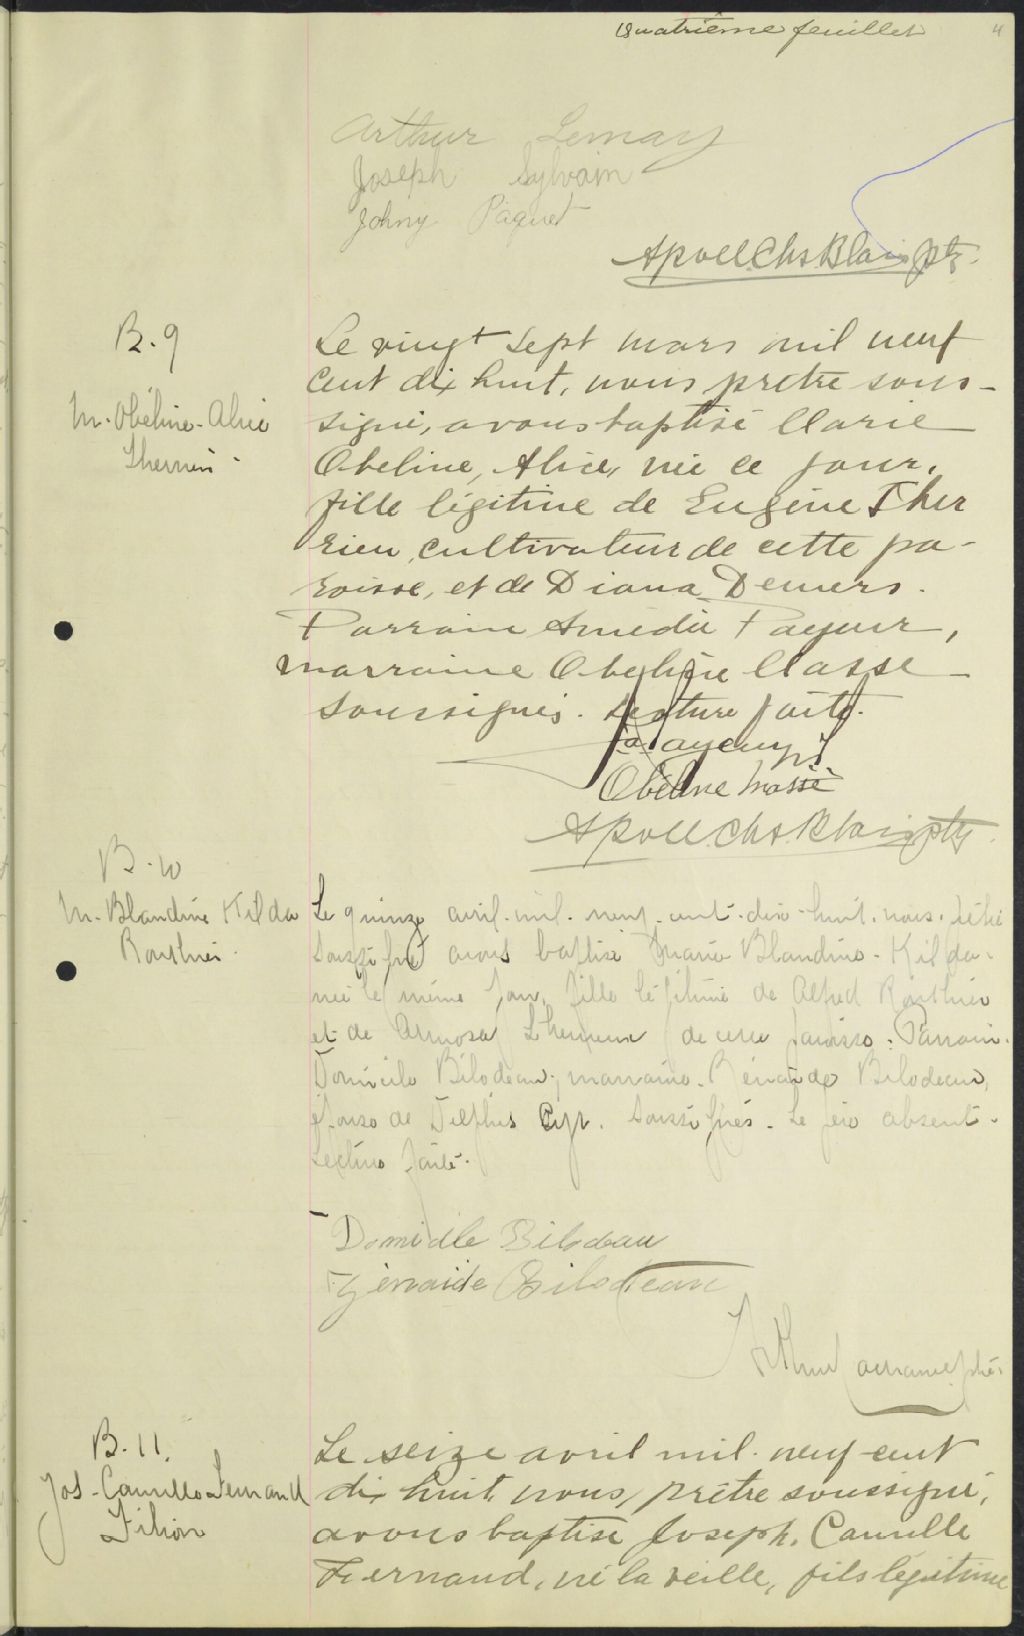 Quatrième feuillet 4
Arthur Lemay
Joseph Sylvain
Johny Paquet
Apoll. Chs Blais ptr.
B. 9
M. Obéline-Alice
Therrien
Le vingt sept mars mil neuf
cent dix huit, nous prêtre sous-
signé, avons baptisé Marie
Obeline, Alice, née ce jour,
fille légitime de Eugène Ther
rien, cultivateur de cette pa-
roisse, et de Diana Demers.
Parrain Amédée Payeur,
marraine Obeline Masse
soussignés. Lecture faite.
Payeur
Obéline Massé
Apoll. Chs Blais ptr
B. 10
M. Blandine Kilda
Routhier
Le quinze avril mil neuf cent dix-huit, nous, prêtre
soussigné avons baptisé Marie Blandine-Kilda
née le même jour, fille légitime de Alfred Routhier
et de Armosa Lheureux de cette paroisse. Parrain
Domicile Bilodeau, marraine Zénaïde Bilodeau,
épouse de Delphis Cyr. soussignés. Le père absent.
Lecture faite.
Domicile Bilodeau
Zénaide Bilodeau
Arthur ptre
B. 11.
Jos-Camille-Fernand
Filion
Le seize avril mil neuf cent
dix huit, nous, prêtre soussigné,
avons baptisé Joseph, Camille
Fernand, né la veille, fils légitime